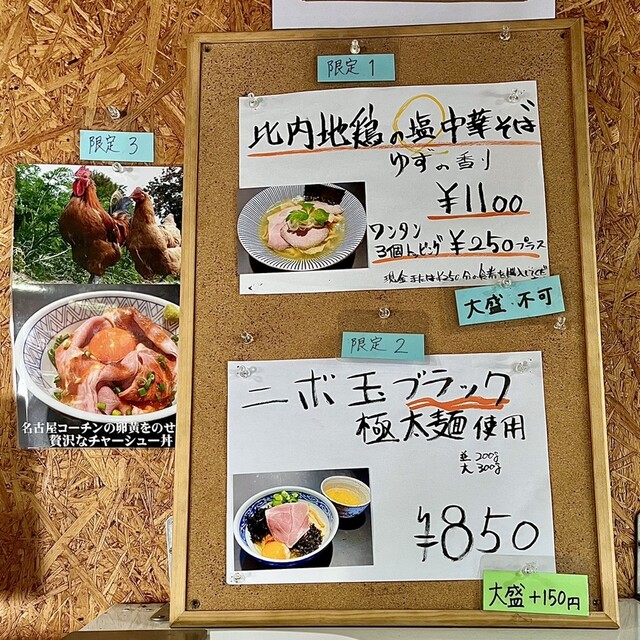 限定1
比内地鶏の塩中華そば
ゆずの香り
¥1100
ワンタン
3個トッピング ¥250プラス
大盛 不可
限定2
ニボ玉ブラック
極太麺使用
並200g
大300g
¥850
大盛+150円
限定3
名古屋コーチンの卵黄をのせ
贅沢なチャーシュー丼